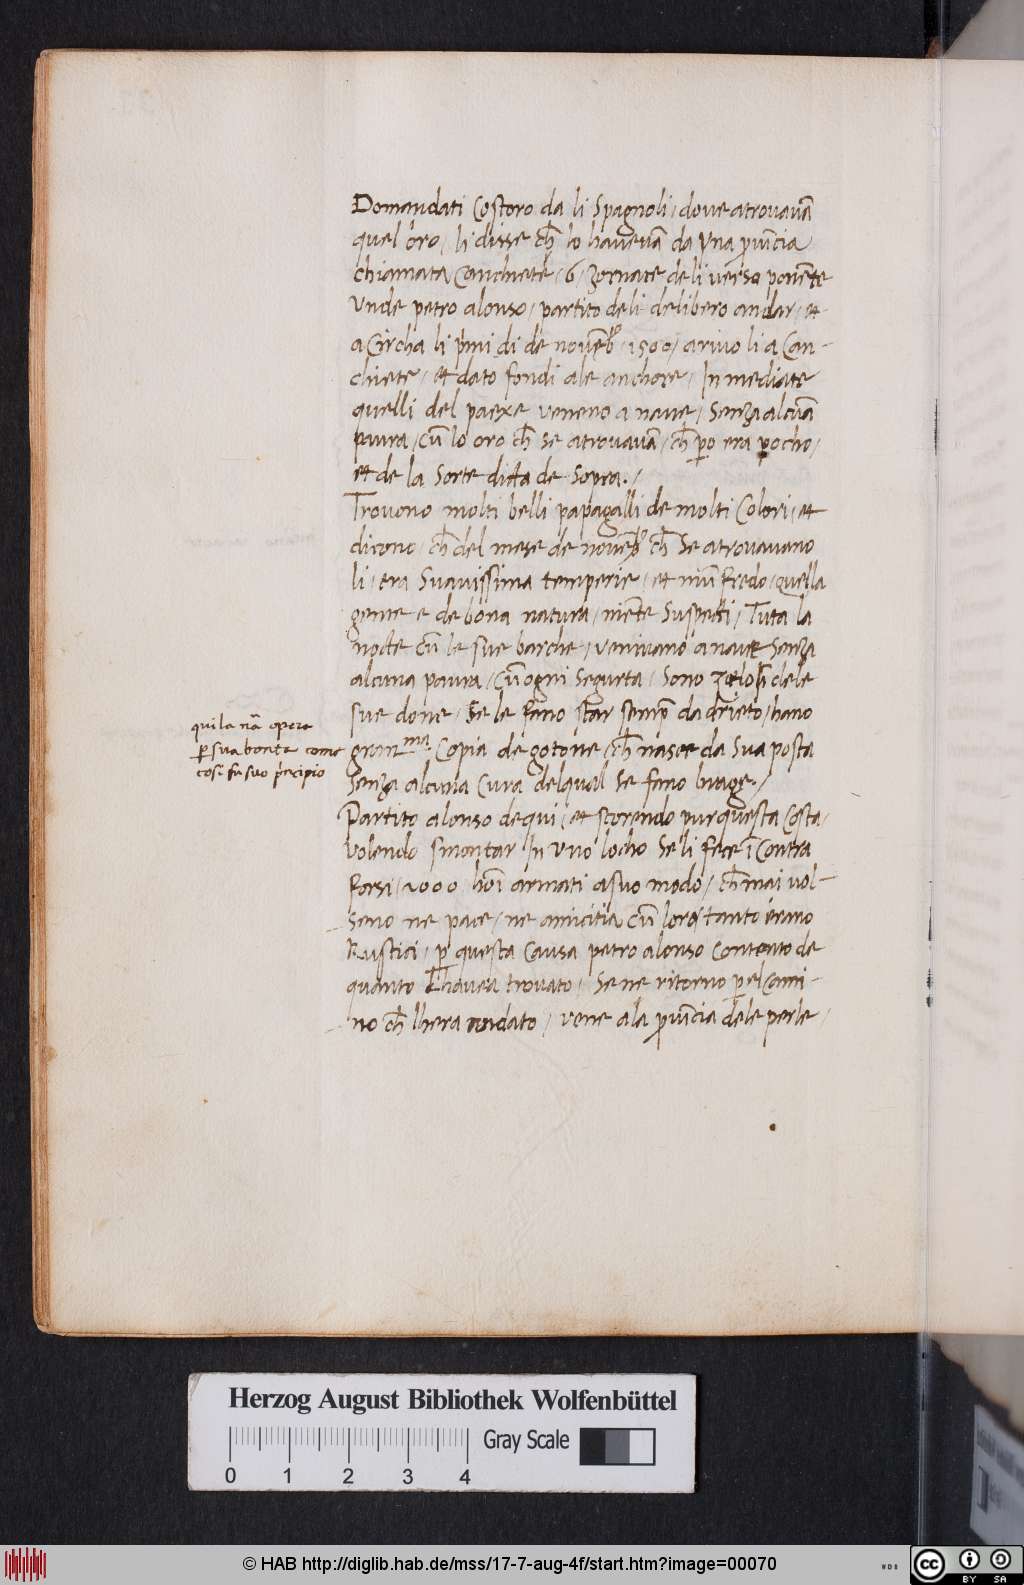 Domandati Costoro da li Spagnoli, doue atrouauā
quel oro, li disse ch̄ lo haueuā da Vna prouīcia
chiamata Canchiete, 6, zornate de li verso ponēte
Vnde petro alonso, partito de li delibero andar, et
a Circha li p̄mi di de nouēb, 1500, ariuo li a Can-
chiete, et dato fondi a le anchore, In mediate
quelli del paexe veneno a naue, Senza alcūa
paura, cū lo oro ch̄ se atrouauā, ch̄ po era pocho,
et de la Sorte dicta de Sopra./
Trouono molti belli papagalli de molti Colori, et
dicono, ch̄ del mese de nouēb ch̄ Se atrouauano
li, era Suauissima temperie, et niū Fredo, quella
gente e de bona natura, niēte Suspecti, Tuta la
nocte cū le sue barche, veniuano a naue Senza
alcuna paura, cū ogni Segurta, Sono zelosi dele
sue done, Se le Fano star semp̄ da drieto, hano
gran.ma Copia de gotone, ch̄ nasce da Sua posta
Senza alcuna Cura del qual Se fano brage./
qui la nā opera
p̱ sua bonta come
cosi fu suo p̄ncipio
Partito alonso de qui, et scorendo pur questa Costa,
Volendo smontar In Vno locho Se li fece ī Contra
Forsi, 2000, hoī armati a suo modo, ch̄ mai vol-
Seno ne pace, ne amicitia cū loro, tanto erano
Rustici, p̱ questa Causa petro alonso Contento de
quanto L'hauea trouato, Se ne ritorno p̱ el Cami-
no ch̄ lhera andato, vene a la prouīcia dele perle,
Herzog August Bibliothek Wolfenbüttel
Gray Scale
0 1 2 3 4
© HAB http://diglib.hab.de/mss/17-7-aug-4f/start.htm?image=00070
WDB
cc BY SA